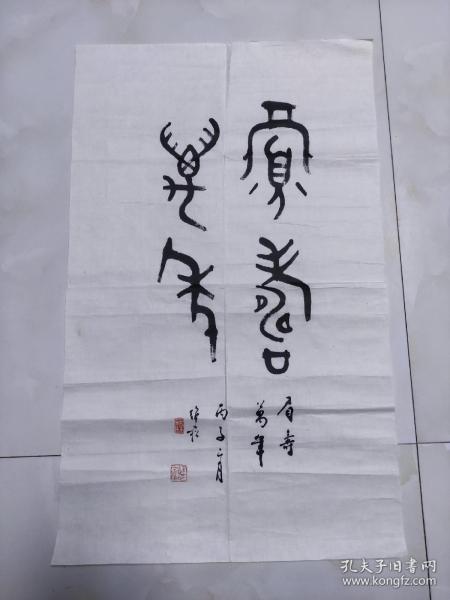 眉壽
萬年
眉壽
萬年
丙子二月
孔夫子旧书网
www.kongfz.com